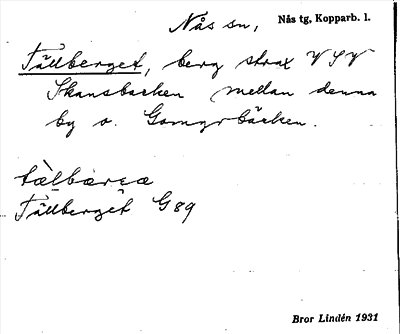 Nås sn, Nås tg, Kopparb. l.
Tällberget, berg strax V S V
Skansbacken mellan denna
by o. Gomyrbäcken.
Tällberget G 89
Bror Lindén 1931